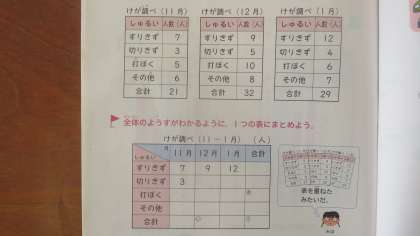 けが調べ(11月) けが調べ(12月) けが調べ(1月)
しゅるい 人数(人) しゅるい 人数(人) しゅるい 人数(人)
すりきず 7 すりきず 9 すりきず 12
切りきず 3 切りきず 5 切りきず 4
打ぼく 5 打ぼく 10 打ぼく 6
その他 6 その他 8 その他 7
合計 21 合計 32 合計 29
全体のようすがわかるように、1つの表にまとめよう。
けが調べ(11〜1月) (人)
月 11月 12月 1月 合計
しゅるい
すりきず 7 9 12
切りきず 3
打ぼく
その他
合計
表を重ねた
みたいだ。